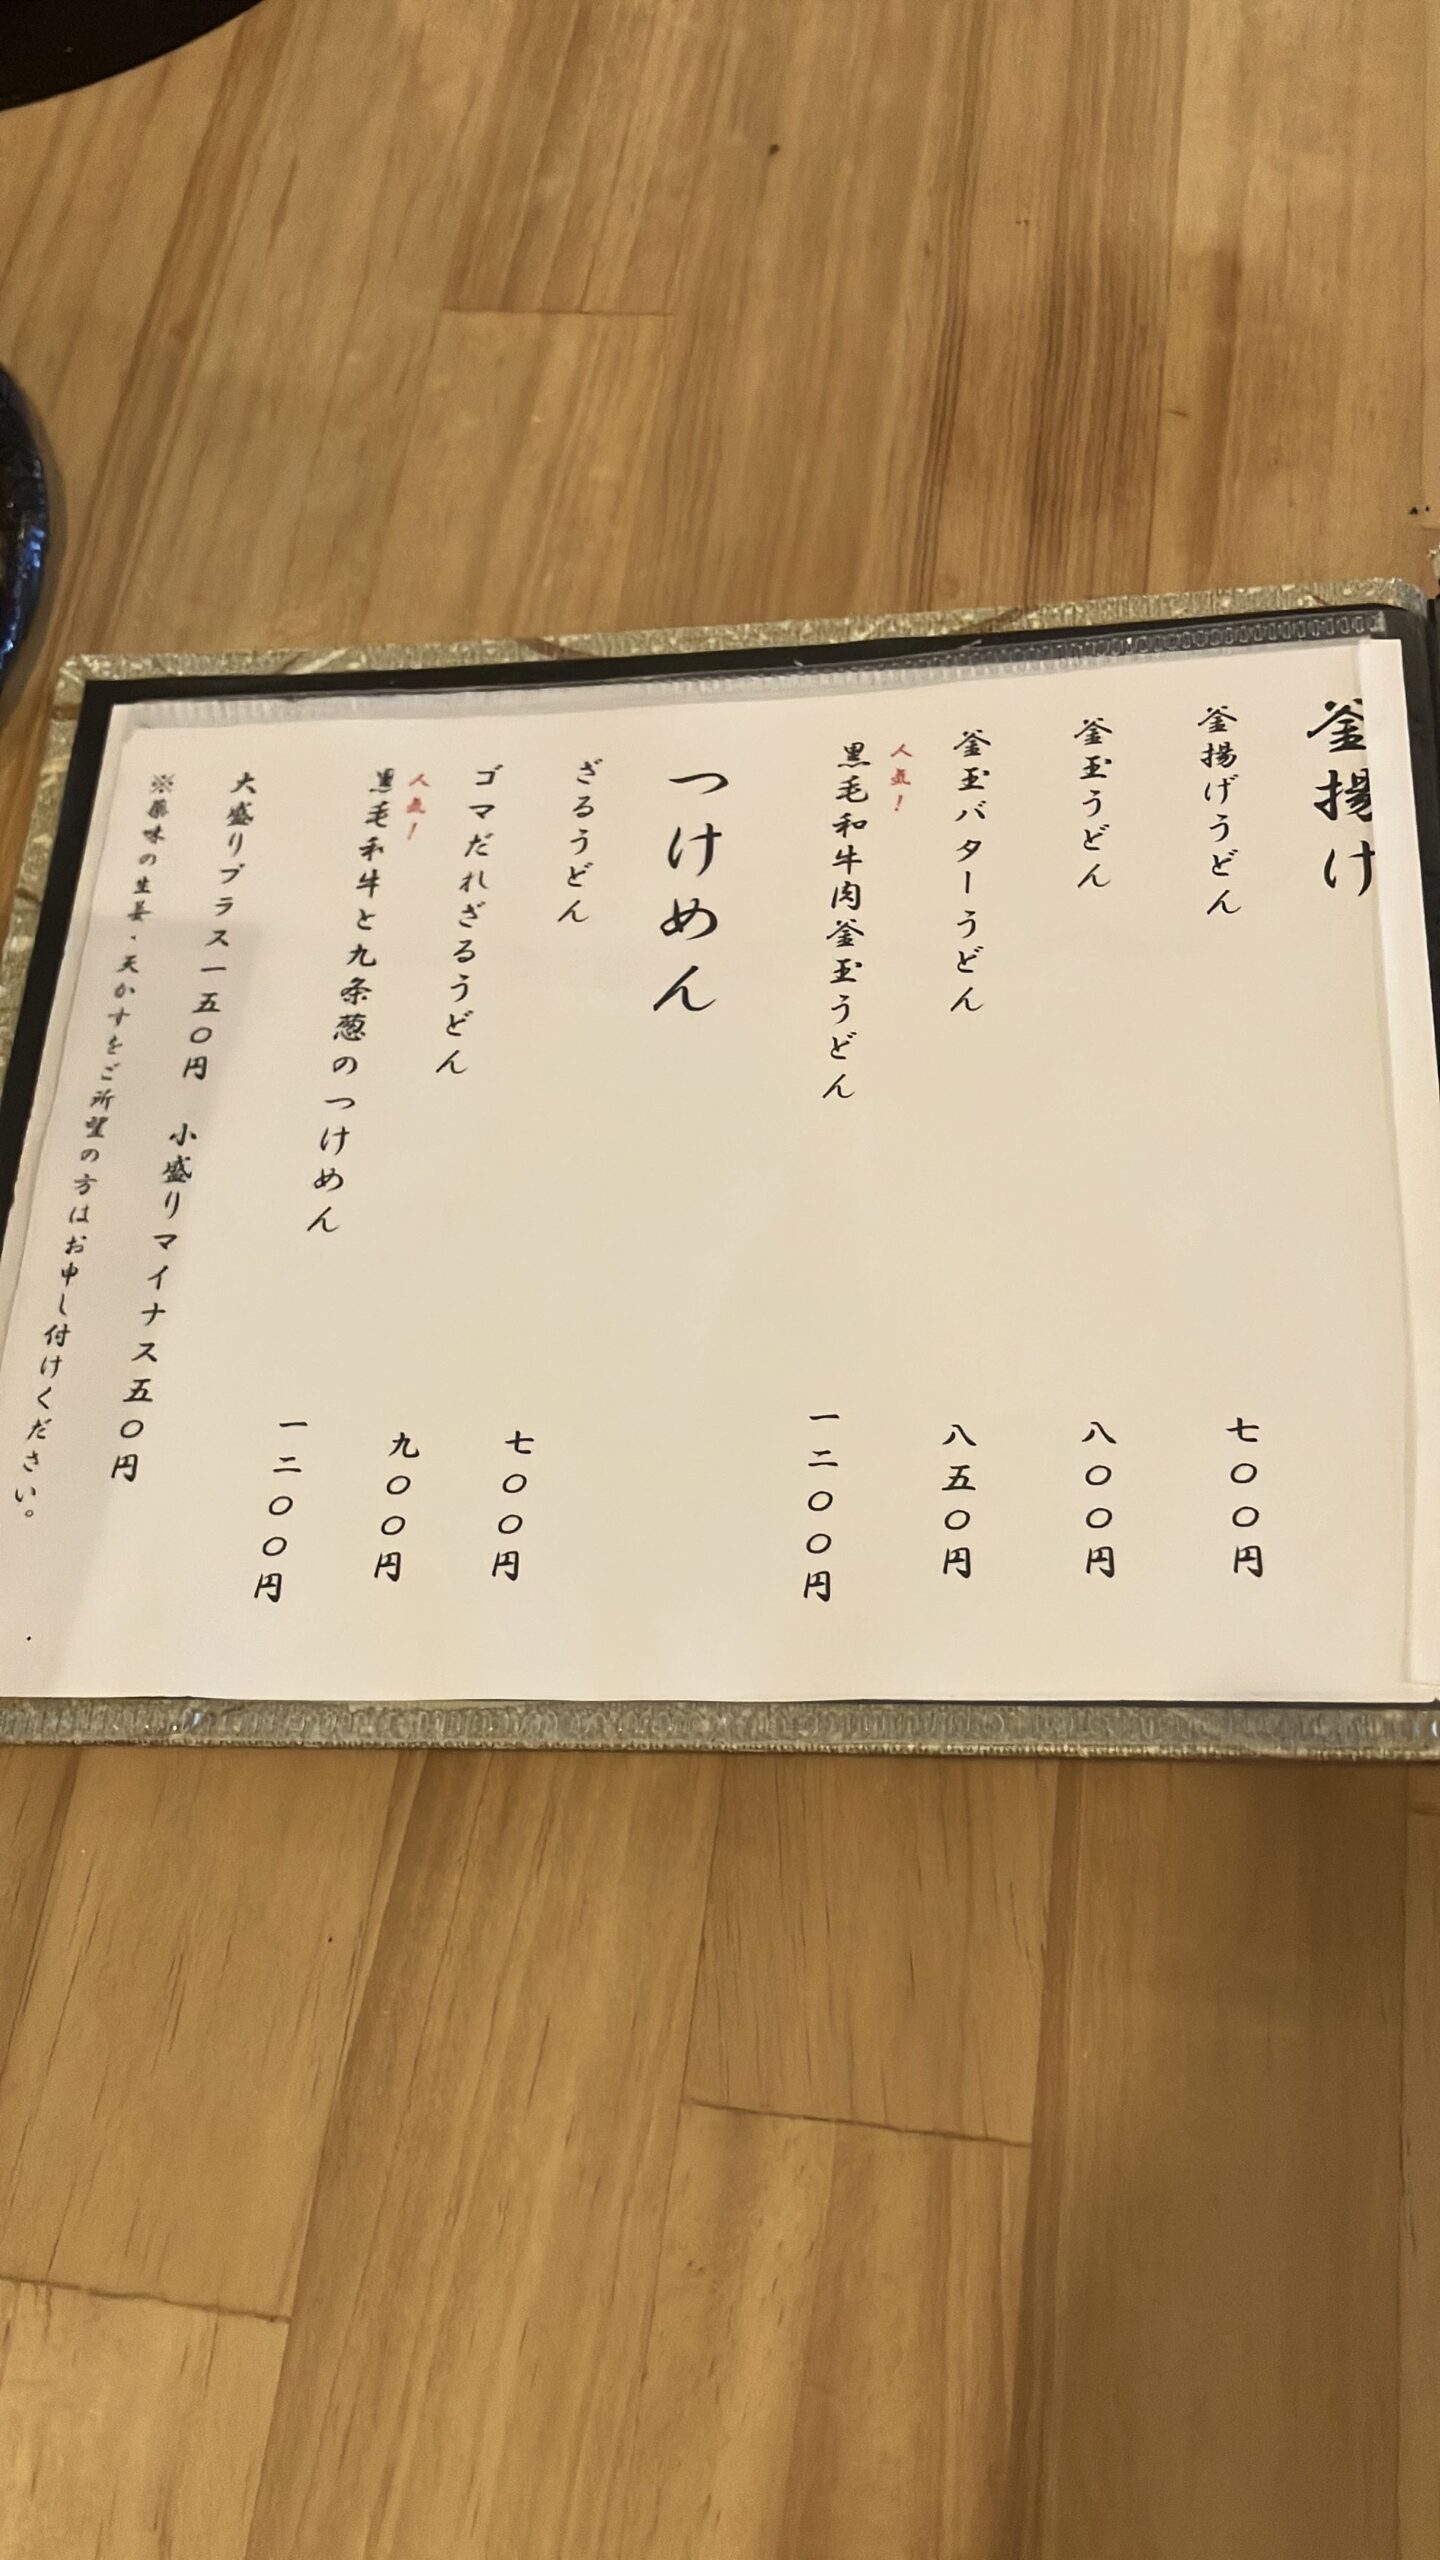 釜揚げ
釜揚げうどん 七〇〇円
釜玉うどん 八〇〇円
釜玉バターうどん 八五〇円
人気!
黒毛和牛肉釜玉うどん 一二〇〇円
つけめん
ざるうどん 七〇〇円
ゴマだれざるうどん 九〇〇円
人気!
黒毛和牛と九条葱のつけめん 一二〇〇円
大盛りプラス一五〇円 小盛りマイナス五〇円
※薬味の生姜・天かすをご所望の方はお申し付けください。